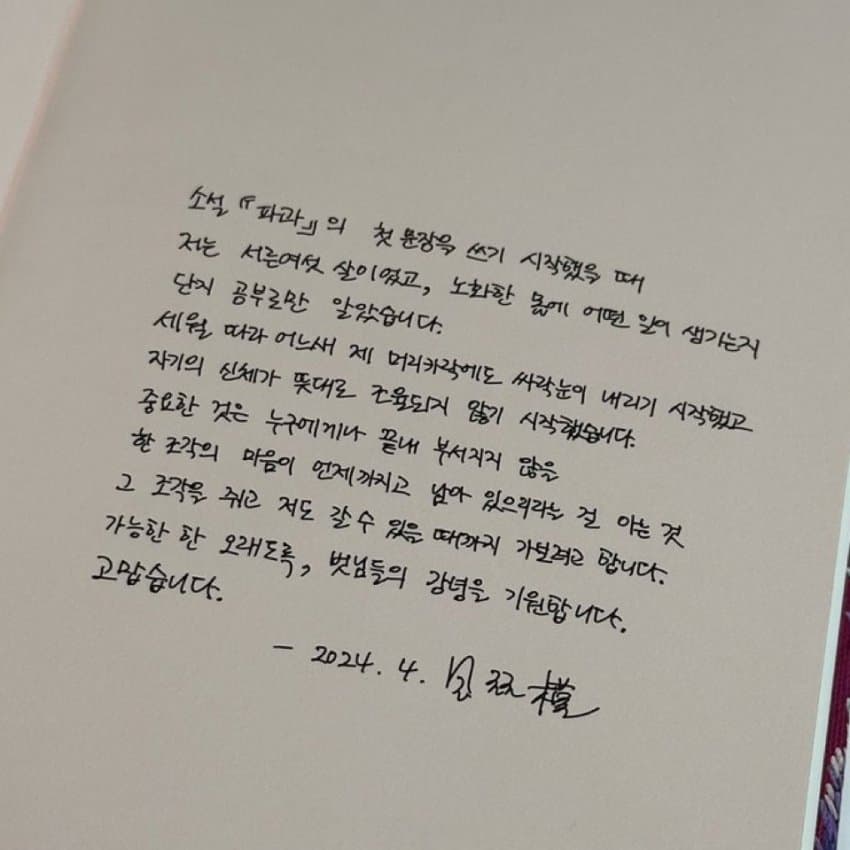 소설 『파과』의 첫 문장을 쓰기 시작했을 때
저는 서른여섯 살이었고, 노화한 몸에 어떤 일이 생기는지
단지 공부로만 알았습니다.
세월 따라 어느새 제 머리카락에도 싸락눈이 내리기 시작했고
자기의 신체가 뜻대로 조율되지 않기 시작했습니다.
중요한 것은 누구에게나 끝내 부서지지 않을
한 조각의 마음이 언제까지고 남아 있으리라는 걸 아는 것
그 조각을 쥐고 저도 갈 수 있을 때까지 가보려고 합니다.
가능한 한 오래도록, 벗님들의 강녕을 기원합니다.
고맙습니다.
— 2024. 4.